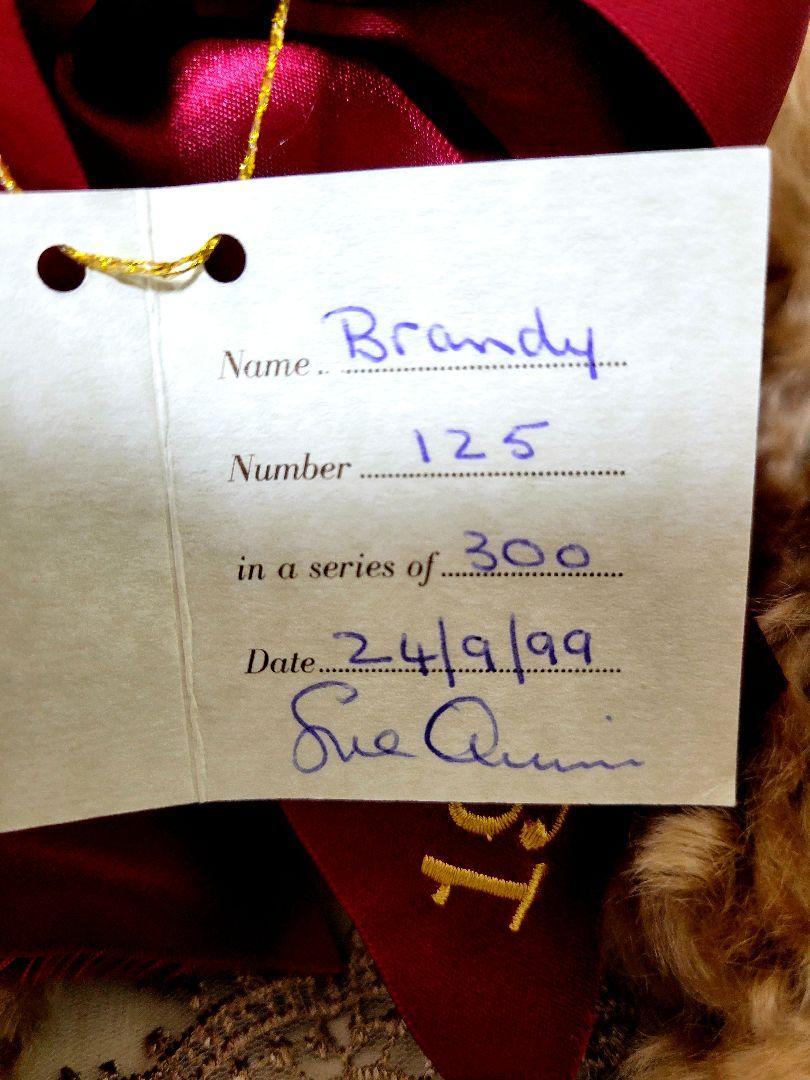 Name Brandy
Number 125
in a series of 300
Date 24/9/99
Sue Quinn
19